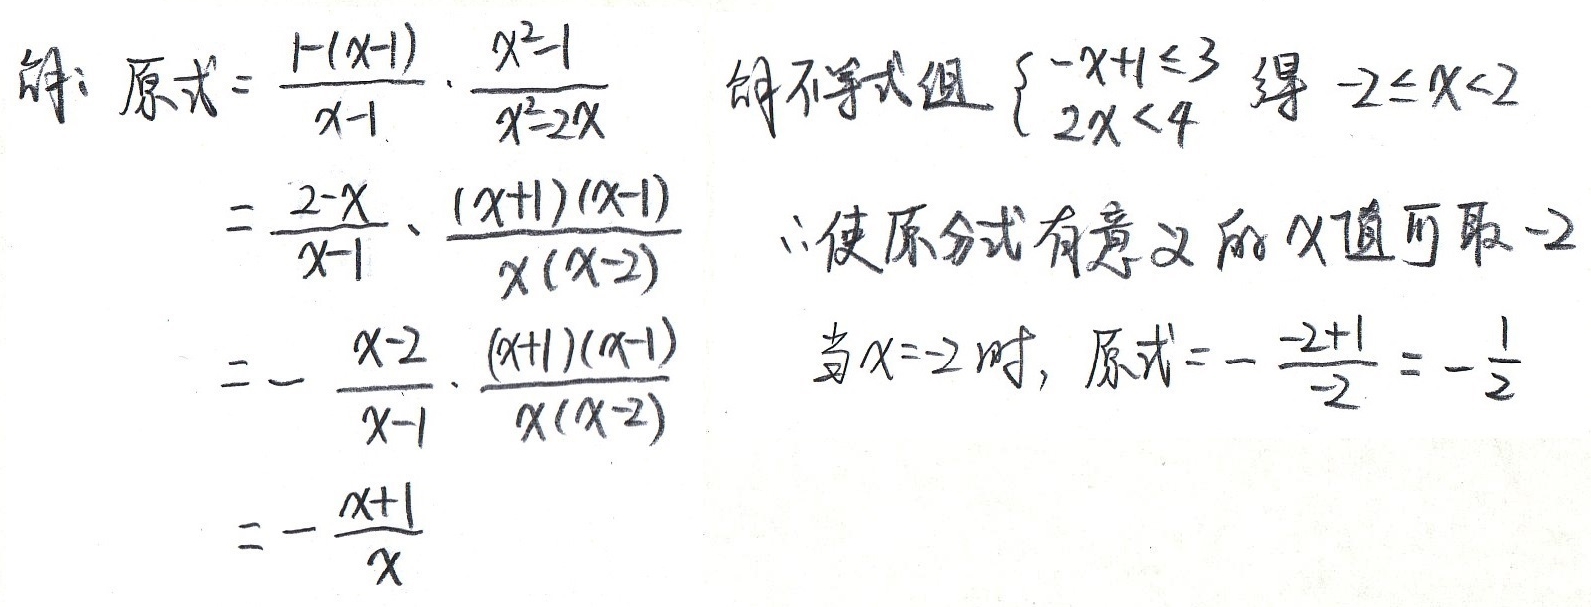 解：原式 = \frac{1-(x-1)}{x-1} · \frac{x²-1}{x²-2x}
= \frac{2-x}{x-1} · \frac{(x+1)(x-1)}{x(x-2)}
= - \frac{x-2}{x-1} · \frac{(x+1)(x-1)}{x(x-2)}
= - \frac{x+1}{x}
解不等式组 { -x+1≤3 2x<4 得 -2≤x<2
∴使原分式有意义的x值可取-2
当x=-2时, 原式 = - \frac{-2+1}{-2} = - \frac{1}{2}